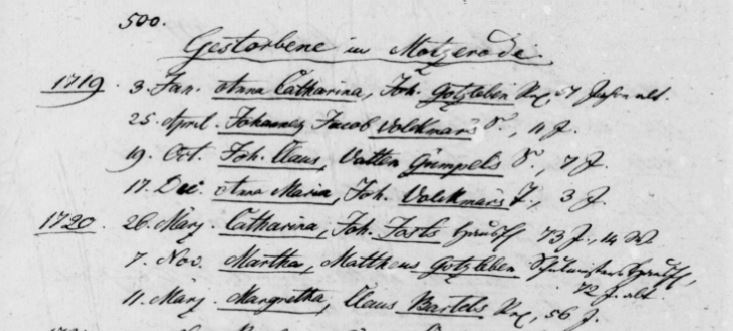 500.
Gestorbene in Motzerode.
1719. 3. Jan. Anna Catharina, Joh. Gotzleben Ux, 57 Jahre alt.
25. April. Johannes, Jacob Volckmars S., 11 J.
19. Oct. Joh. Claus, Valten Grimpels S., 7 J.
17. Dec. Anna Maria, Joh. Volckmars T., 3 J.
1720. 26. März. Catharina, Joh. 73 J., 14 W.
7. Nov. Martha, Mattheus Gotzleben Schulmeisters
72 J. alt.
11. März. Margretha, Claus Bartels Ux, 56 J.